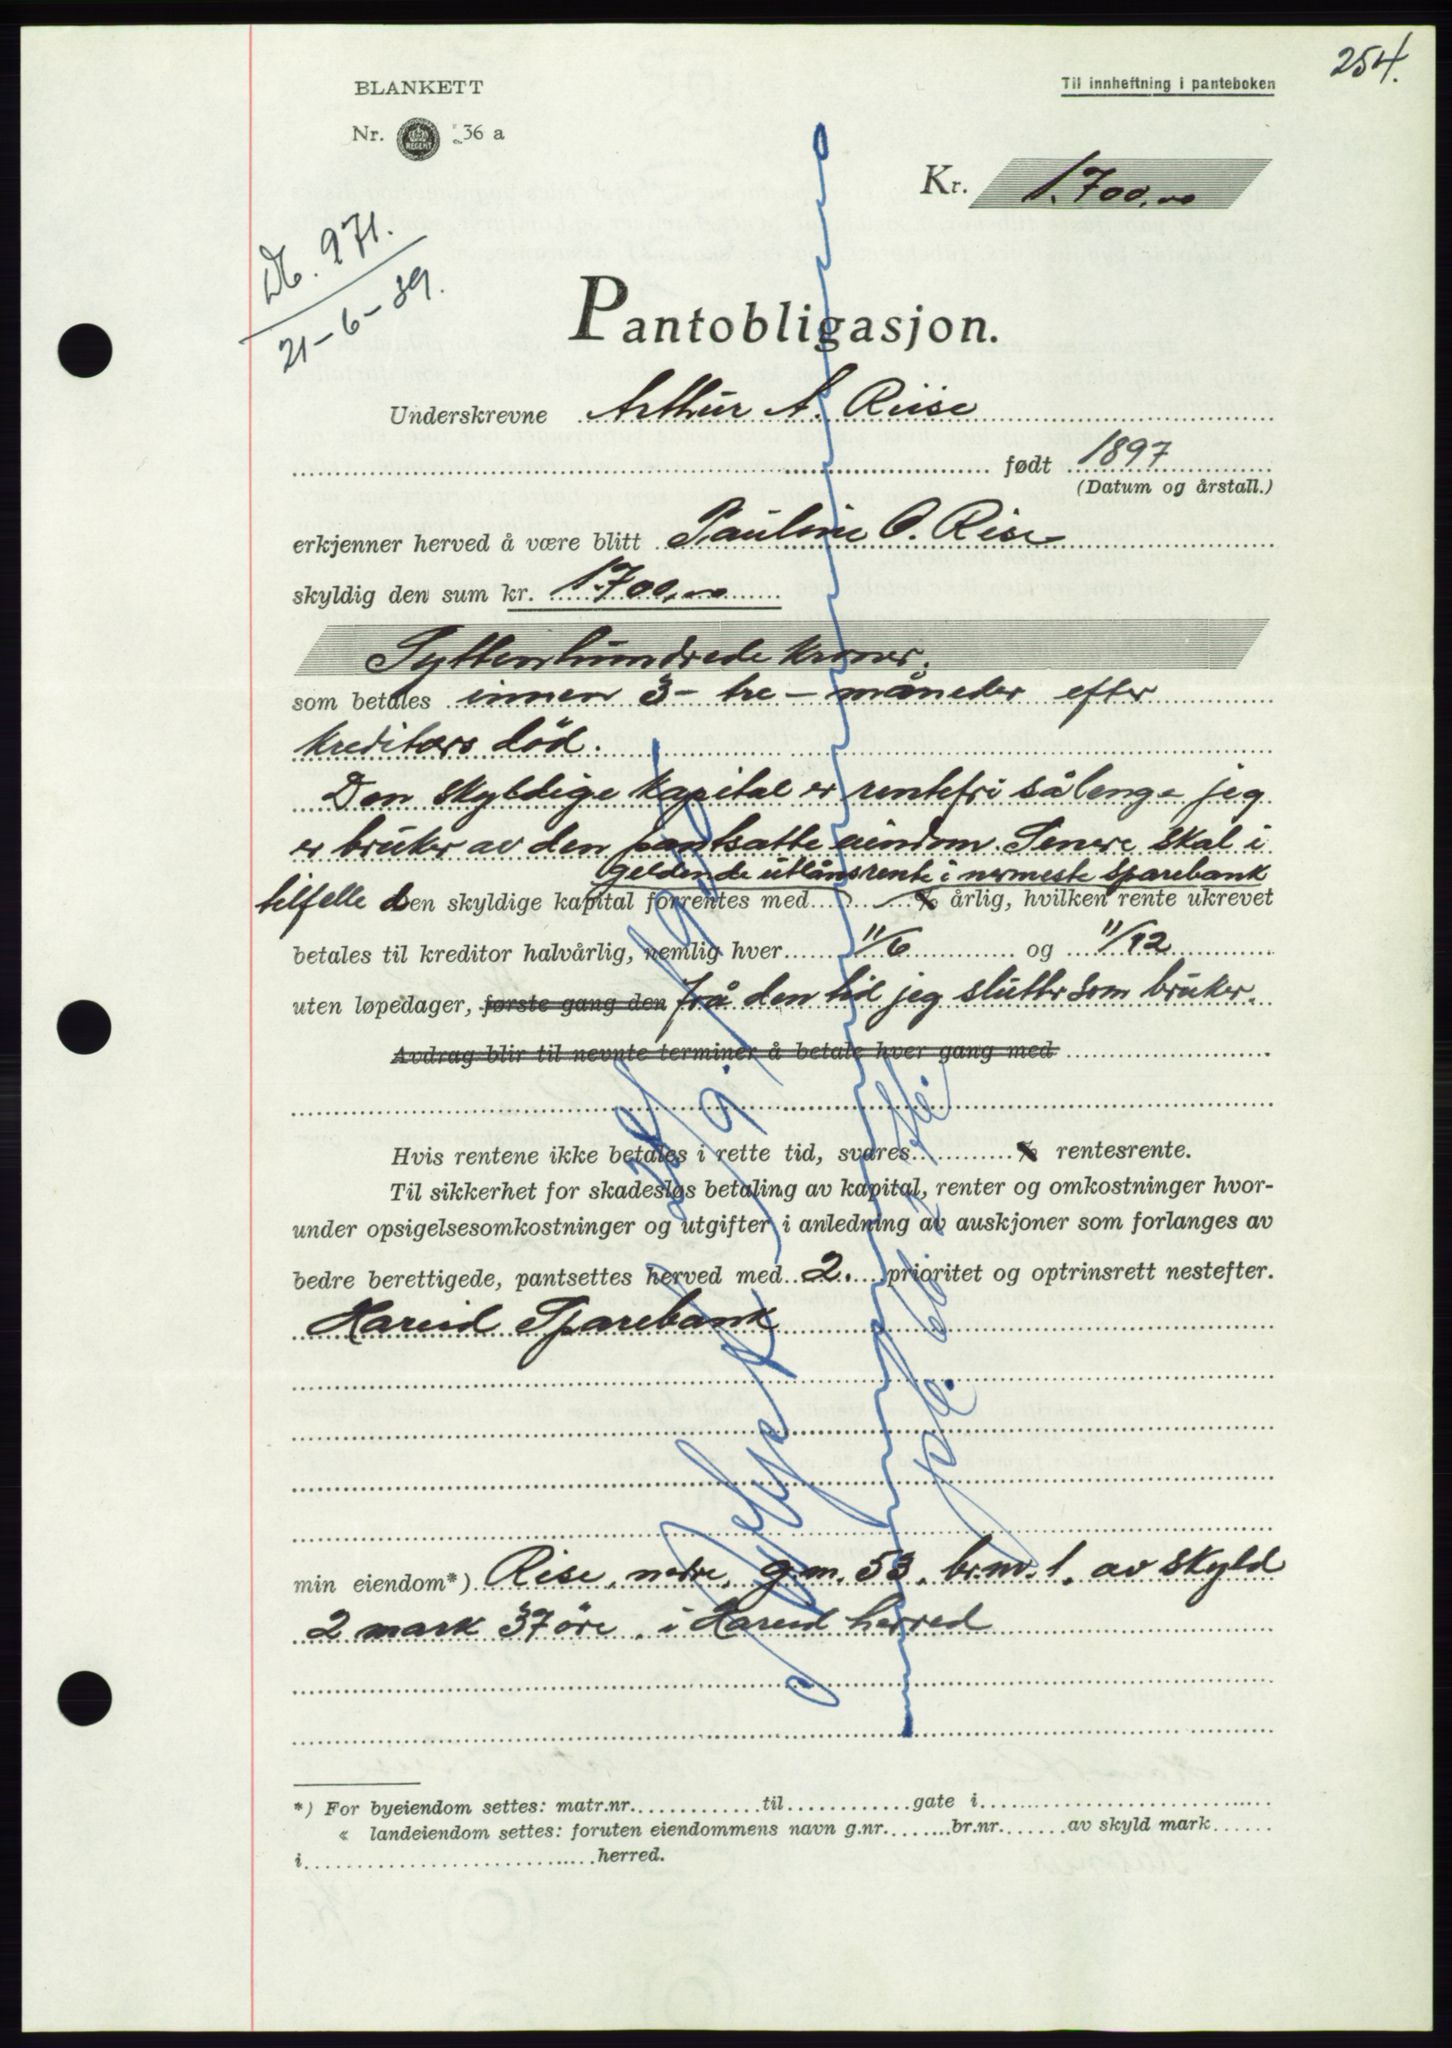 254.
BLANKETT
Til innheftning i panteboken
Nr. REGENT 36 a
Kr. 1.700,00
Nr. 971.
21-6-39.
Pantobligasjon.
Underskrevne Arthur A. Riise
født 1897
(Datum og årstall.)
erkjenner herved å være blitt Pauline O. Rise
skyldig den sum kr. 1.700,00
Syttenhundrede kroner.
som betales innen 3 - tre - måneder efter
kreditors död.
Den skyldige kapital er rentefri sålenge jeg
er bruker av den pantsatte eiendom. Senere skal i
geldende utlånsrente i nermeste sparebank
tilfelle den skyldige kapital forrentes med % årlig, hvilken rente ukrevet
betales til kreditor halvårlig, nemlig hver 11/6 og 11/12
uten løpedager, første gang den frå den tid jeg slutter som bruker.
Avdrag blir til nevnte terminer å betale hver gang med
Hvis rentene ikke betales i rette tid, svares % rentesrente.
Til sikkerhet for skadesløs betaling av kapital, renter og omkostninger hvor-
under opsigelsesomkostninger og utgifter i anledning av auskjoner som forlanges av
bedre berettigede, pantsettes herved med 2. prioritet og optrinsrett nestefter.
Hareid Sparebank
min eiendom*) Rise, nedre, g.nr. 53, br.nr. 1, av skyld
2 mark 37 öre, i Hareid herred
*) For byeiendom settes: matr.nr. til gate i
« landeiendom settes: foruten eiendommens navn g.nr. br.nr. av skyld mark
i herred.